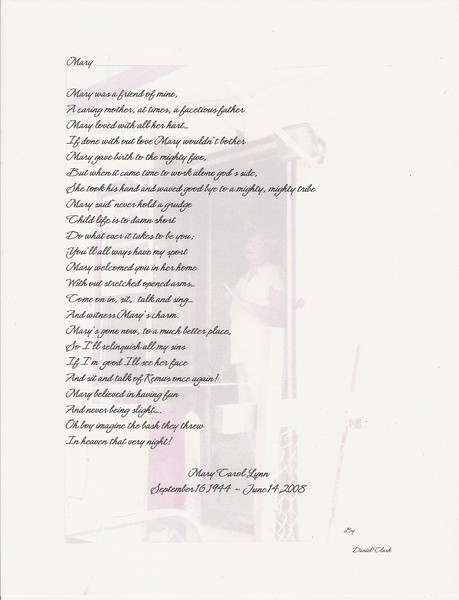 Mary
Mary was a friend of mine,
A caring mother, at times, a facetious father
Mary loved with all her hart...
If done with out love Mary wouldn't bother
Mary gave birth to the mighty five,
But when it came time to work alone god's side,
She took his hand and waved good bye to a mighty, mighty tribe
Mary said never hold a grudge
Child life is to damn short
Do what ever it takes to be you;
You'll all ways have my sport
Mary welcomed you in her home
With out stretched opened arms...
Come on in, sit, talk and sing...
And witness Mary's charm.
Mary's gone now, to a much better place,
So I'll relinquish all my sins
If I'm good I'll see her face
And sit and talk of Remus once again!
Mary believed in having fun
And never being slight...
Oh boy imagine the bash they threw
In heaven that very night!
Mary Carol Lynn
September 16, 1944 ~ June 14, 2008
By
Daniel Clark